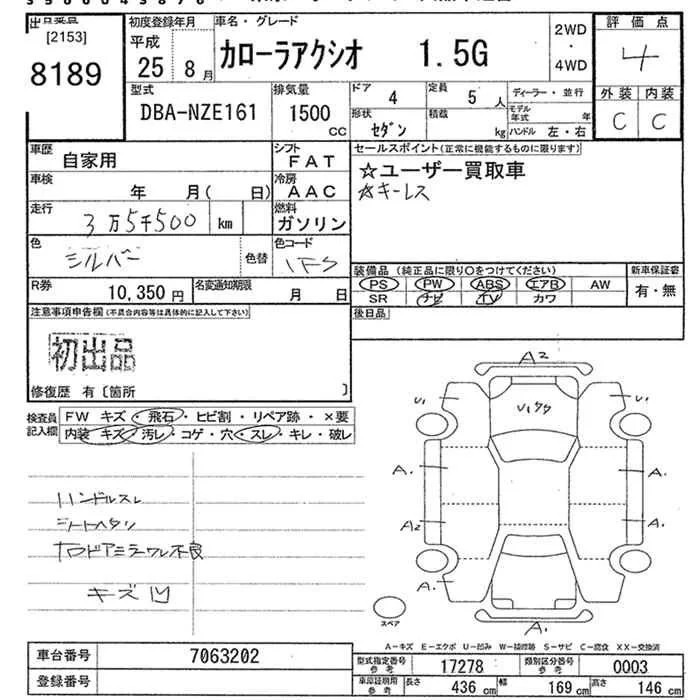 出品番号 初度登録年月 車名・グレード 評価点
[2153] 平成 カローラアクシオ 1.5G 2WD ・ 4WD 4
8189 25 8月 外装 内装
型式 排気量 ドア 4 定員 5人 ディーラー・並行 C C
DBA-NZE161 1500 CC 形状 セダン 積載 kg モデル年式 年
ハンドル 左・右
車歴 自家用 シフト FAT セールスポイント(正常に機能するものに限ります)
車検 年 月( 日) 冷房 AAC ☆ユーザー買取車
走行 3万5千500 km 燃料 ガソリン ☆キーレス
色 シルバー 色替 色コード 1F5
R券 10,350円 名変通知期限 月 日
装備品 (純正品に限り〇をつけてください) 新車保証書
PS PW ABS エアB AW 有・無
SR ナビ TV カワ
注意事項申告欄(不具合内容等は具体的に記入して下さい) 後日品
初出品
修復歴 有〔箇所 〕
検査員記入欄 FW キズ・飛石・ヒビ割・リペア跡・×要
内装 キズ・汚レ・コゲ・穴・スレ・キレ・破レ
A2
U1 U1
U1ケケ
A. A.
A2 A.
A.
A.
ハンドルスレ
シートヘタリ
キズ 凹
スペア
A−キズ E−エクボ U−凹み W−補修跡 S−サビ C−腐食 XX−交換済
車台番号 7063202 型式指定番号 参考 17278 類別区分番号 参考 0003
登録番号 車庫証明用 参考 長さ 436 cm 幅 169 cm 高さ 146 cm